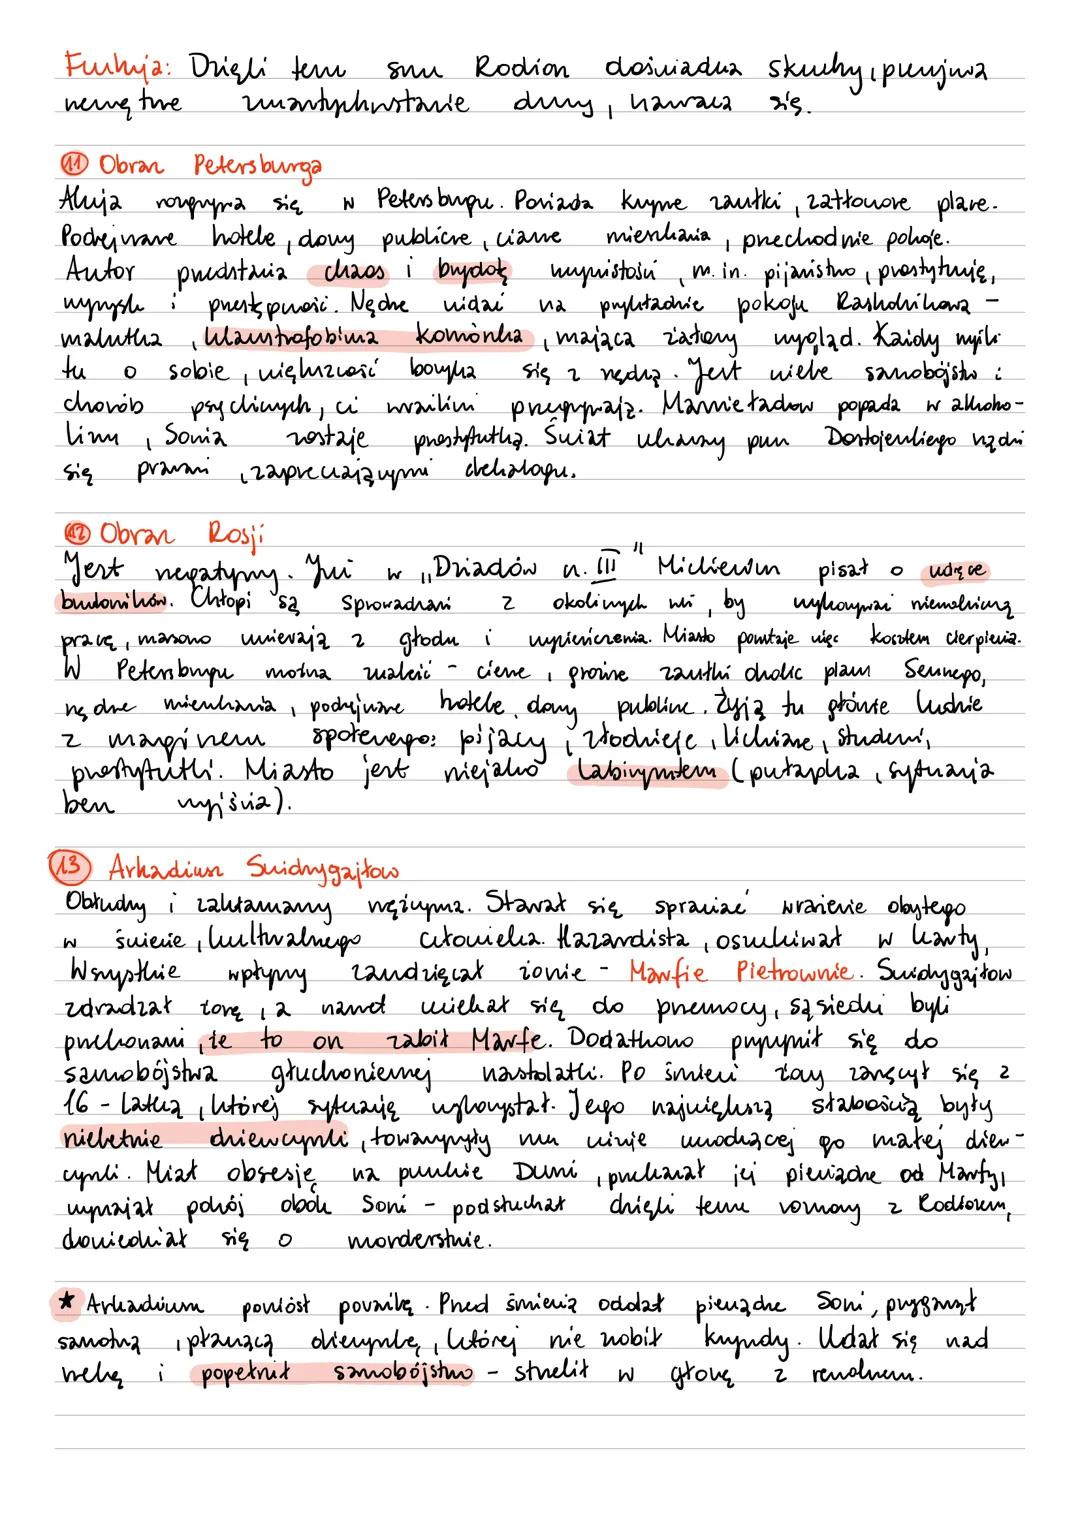 Funkcja: Dzięki temu snu Rodion doświadcza skruchy, przeżywa
wewnętrzne zmartwychwstanie duszy, nawraca się.
11 Obraz Petersburga
Akcja rozgrywa się w Petersburgu. Posiada krzywe zaułki, zatłoczone place.
Podejrzane hotele, domy publiczne, ciasne mieszkania, przechodnie pokoje.
Autor przedstawia chaos i brzydotę rzeczywistości, m.in. pijaństwo, prostytucję,
wyzysk i przestępczość. Nędzę widać na przykładzie pokoju Raskolnikowa -
malutka, klaustrofobiczna komórka, mająca żałosny wygląd. Każdy myśli
tu o sobie, większość boryka się z nędzą. Jest wiele samobójstw i
chorób psychicznych, ci wrażliwi przegrywają. Marmieładow popada w alkoho-
lizm, Sonia zostaje prostytutką. Świat ukazany przez Dostojewskiego rządzi
się prawami, zaprzeczającymi dekalogu.
12 Obraz Rosji
Jest negatywny. Już w „Dziadów cz. III" Mickiewicz pisał o udręce
budowników. Chłopi są sprowadzani z okolicznych wsi, by wykonywać niewolniczą
pracę, masowo umierają z głodu i wycieńczenia. Miasto powstaje więc kosztem cierpienia.
W Petersburgu można znaleźć - ciemne, groźne zaułki okolic placu Siennego,
nędzne mieszkania, podejrzane hotele, domy publiczne. Żyją tu głównie ludzie
z marginesu społecznego: pijacy, złodzieje, lichwiarze, studenci,
prostytutki. Miasto jest niejako labiryntem (pułapka, sytuacja
bez wyjścia).
13 Arkadiusz Swidrygajłow
Obłudny i zakłamany mężczyzna. Starał się sprawiać wrażenie obytego
w świecie, kulturalnego człowieka. Hazardzista, oszukiwał w karty,
Wszystkie wpływy zawdzięczał żonie - Marfie Pietrownie. Swidrygajłow
zdradzał żonę, a nawet uciekał się do przemocy, sąsiedzi byli
przekonani, że to on zabił Marfę. Dodatkowo przyczynił się do
samobójstwa głuchoniemej nastolatki. Po śmierci żony zaręczył się z
16-latką, której sytuację wykorzystał. Jego największą słabością były
nieletnie dziewczynki, towarzyszyły mu wizje uwodzącej go małej dziew-
czynki. Miał obsesję na punkcie Duni, przekazał jej pieniądze od Marfy,
wynajął pokój obok Soni - podsłuchał dzięki temu rozmowy z Rodionem,
dowiedział się o morderstwie.
★ Arkadiusz poniósł porażkę. Przed śmiercią oddał pieniądze Soni, przygarnął
samotną, płaczącą dziewczynkę, której nie zrobił krzywdy. Udał się nad
rzekę i popełnił samobójstwo - strzelił w głowę z rewolweru.